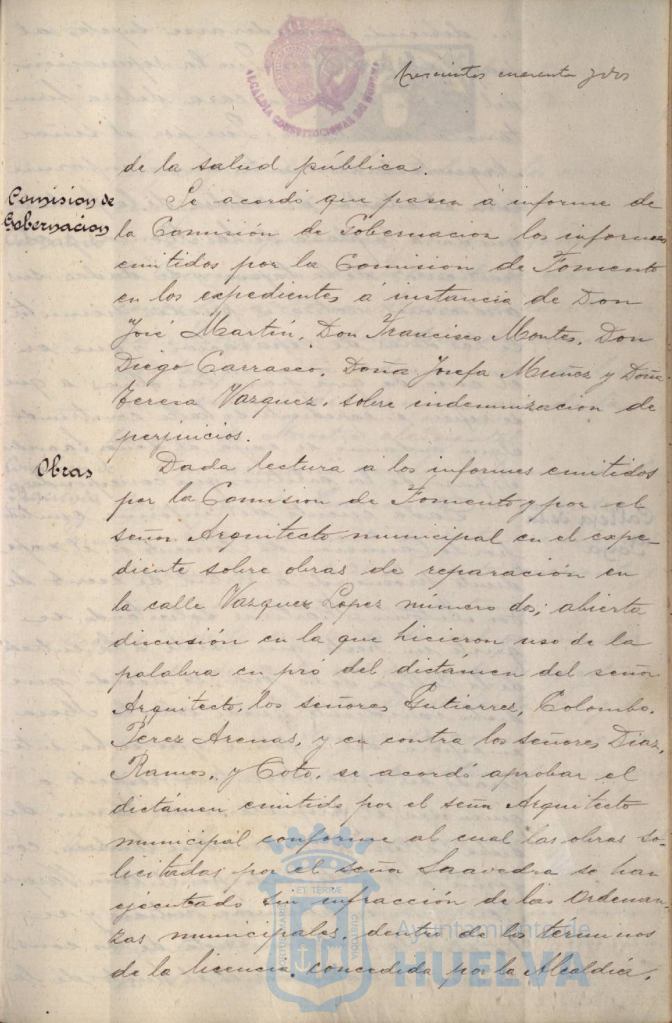 trescientos cuarenta y dos
ALCALDIA CONSTITUCIONAL DE HUELVA
de la salud pública.
Comision de
Gobernacion
Se acordó que pasen á informe de
la Comisión de Gobernacion los informes
emitidos por la Comision de Fomento
en los expedientes á instancia de Don
José Martín, Don Francisco Montes, Don
Diego Carrasco, Doña Josefa Muñoz y Doña
Teresa Vazquez, sobre indemnizacion de
perjuicios.
Obras
Dada lectura á los informes emitidos
por la Comision de Fomento y por el
señor Arquitecto municipal en el expe-
diente sobre obras de reparación en
la calle Vazquez Lopez número dos; abierta
discusión en la que hicieron uso de la
palabra en pró del dictámen del señor
Arquitecto, los señores Gutierrez, Colombo,
Perez Arenas, y en contra los señores Diaz,
Ramos, y Coto, se acordó aprobar el
dictámen emitido por el señor Arquitecto
municipal conforme al cual las obras so-
licitadas por el señor Saavedra se han
ejecutado sin infracción de las Ordenan-
zas municipales, dentro de los terminos
de la licencia, concedida por la Alcaldía.
Ayuntamiento de
HUELVA